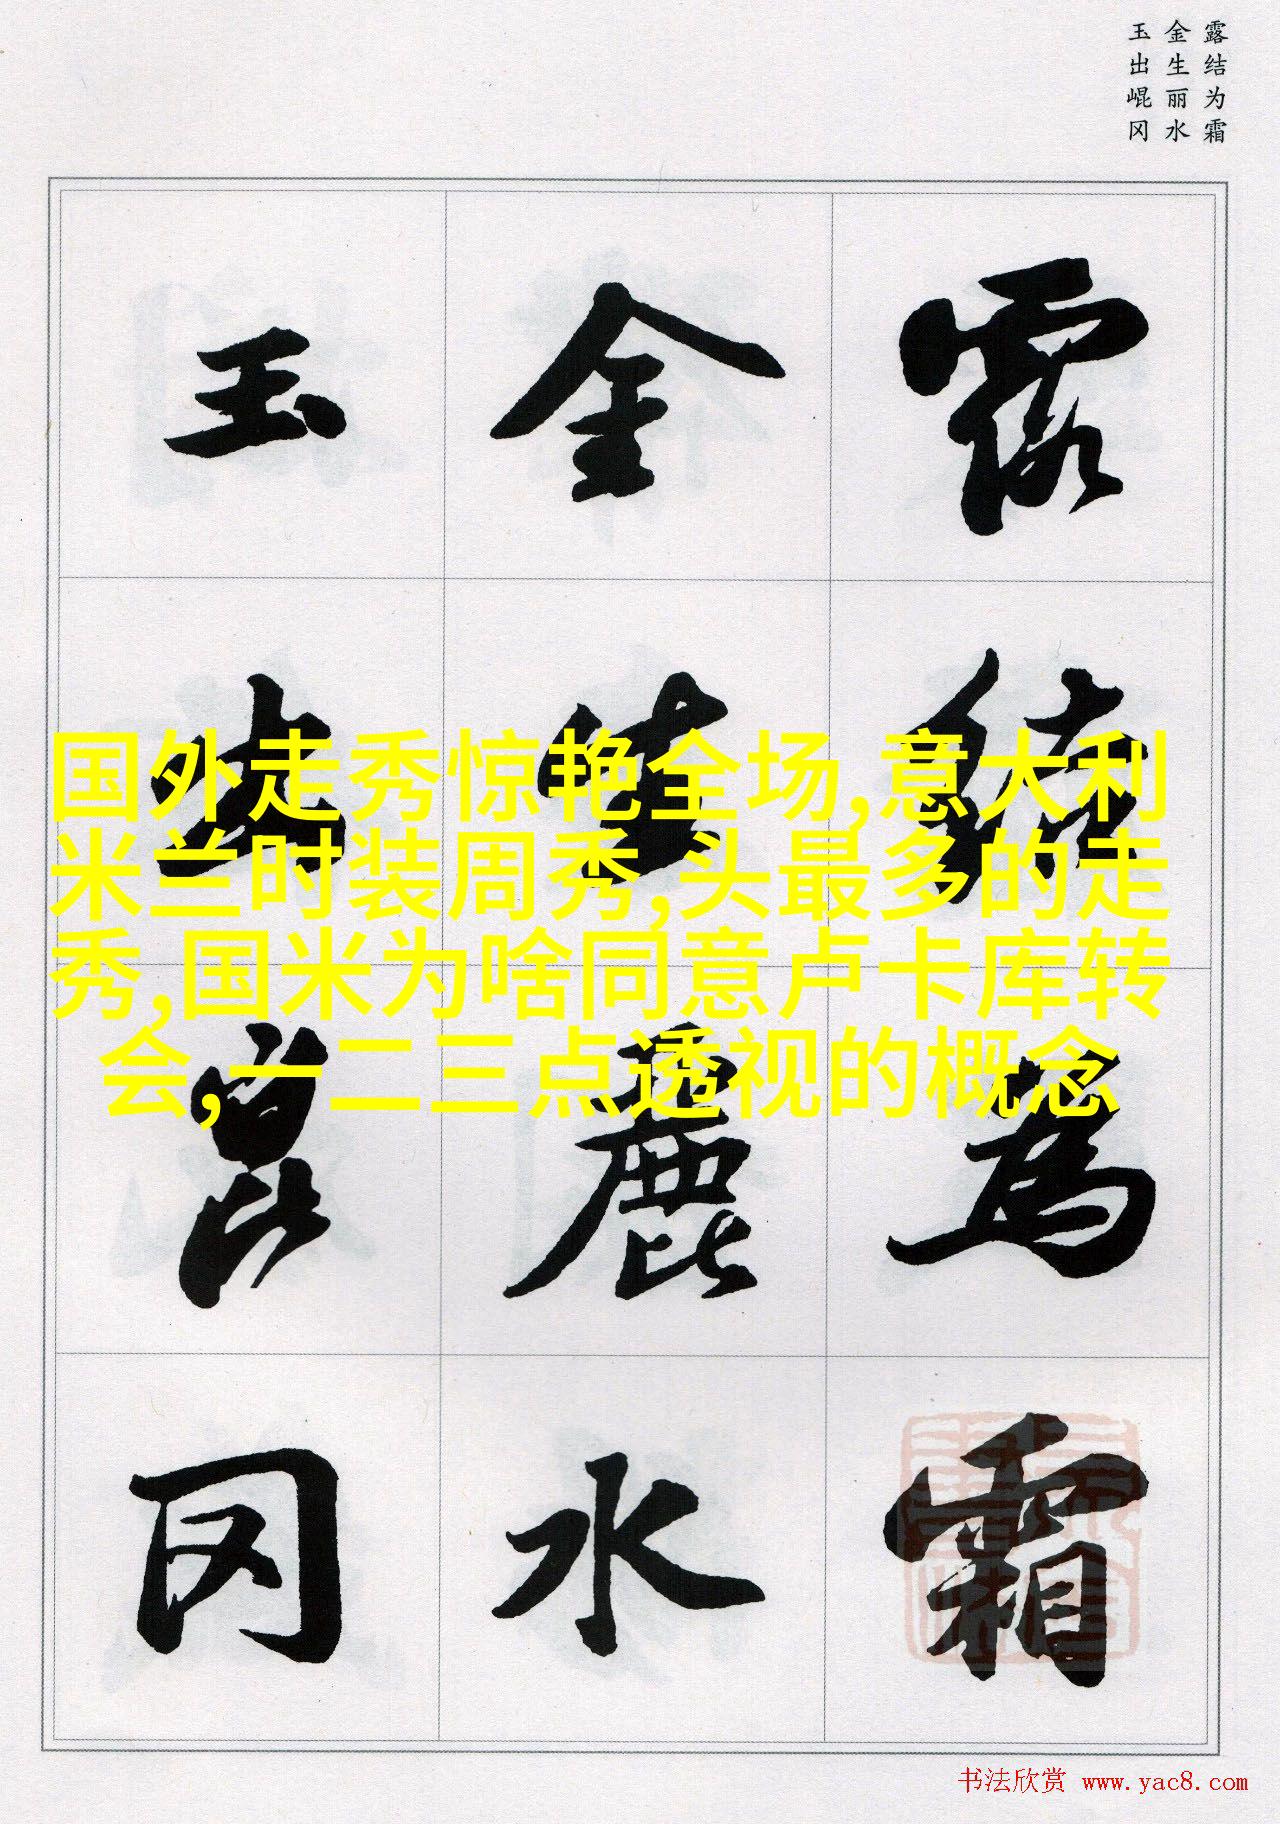 露结为霜
金生丽水
玉出崐冈
露結為霜
金生麗水
玉出崑冈
国外走秀惊艳全场,意大利
米兰时装周秀,头最多的走
秀,国米为啥同意卢卡库转
会,一二三点透视的概念
书法欣赏 www.yac8.com